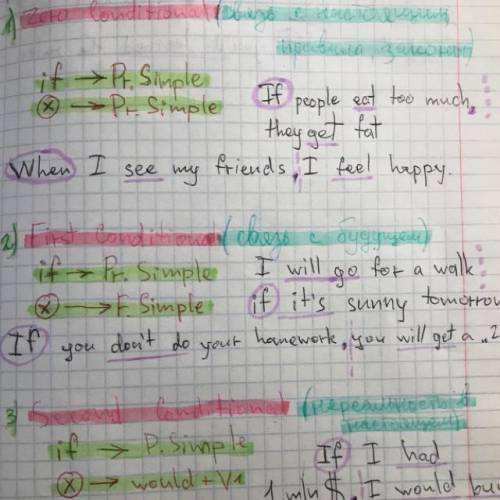 1) Zero Conditional (связь с настоящим
правила законы)
if → Pr. Simple
ⓧ → Pr. Simple
If people eat too much,
they get fat
When I see my friends, I feel happy.
2) First Conditional (связь с будущем)
if → Pr. Simple
I will go for a walk
ⓧ → F. Simple
if it's sunny tomorrow
If you don't do your homework, you will get a „2
3) Second Conditional (нереальность в
настоящем)
if → P. Simple
If I had
ⓧ → would + V1
1 mln $, I would bu